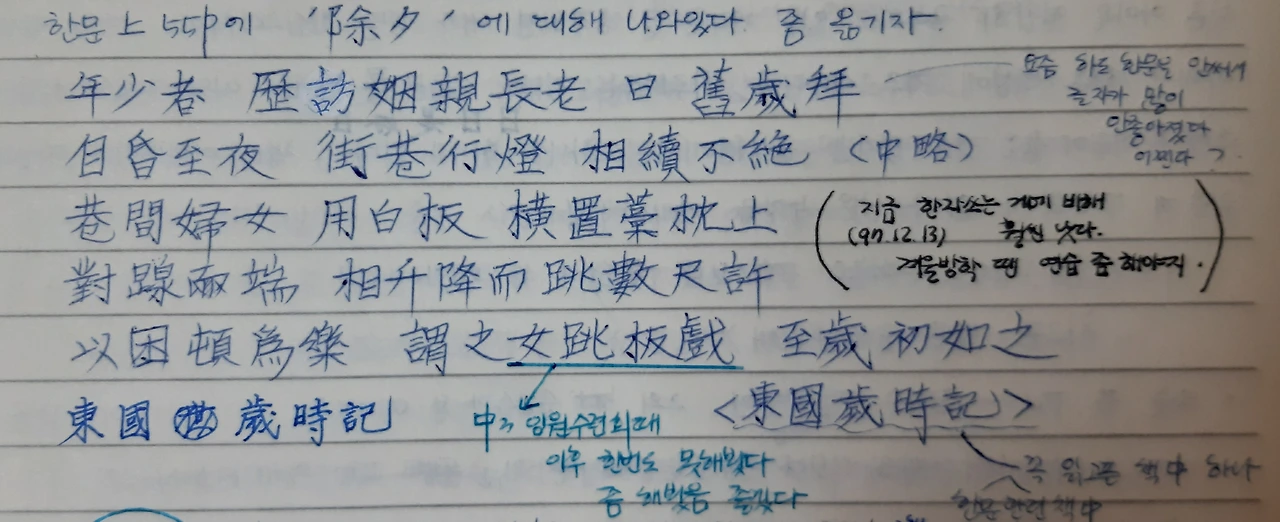 한문 上 55P에 '除夕'에 대해 나와있다 좀 옮기자.
年少者 歷訪姻親長老 曰 舊歲拜
自昏至夜 街巷行燈 相續不絶 (中略)
巷間婦女 用白板 橫置藁枕上
對踏兩端 相升降而跳數尺許
以困頓爲樂 謂之女跳板戲 至歲初如之
東國 歲時記 <東國歲時記>
요즘 하도 한문을 안써서
글자가 많이
안좋아졌다
어떤다?
(지금 한자쓰는 거에 비해
(97.12.13) 훨씬 낫다.
겨울방학 땐 연습 좀 해야지.)
中3 임원수련회때
이후 한번도 못해봤다
좀 해봤음 좋겠다
꼭 읽고픈 책中 하나
한문관련책中